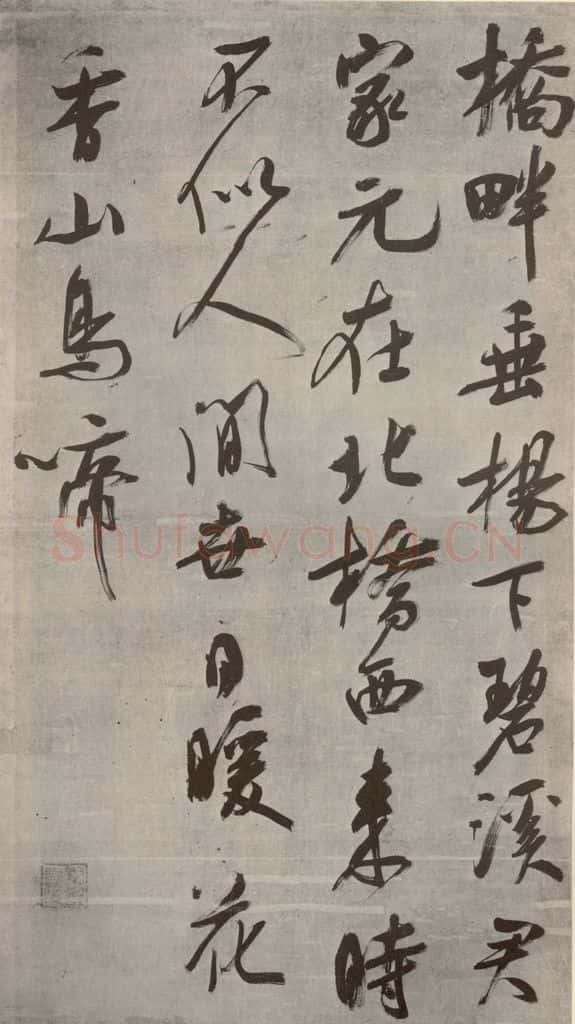 橋畔垂楊下碧溪君
家元在北橋西來時
不似人間世日暖花
香山鳥啼
Shufawang.CN